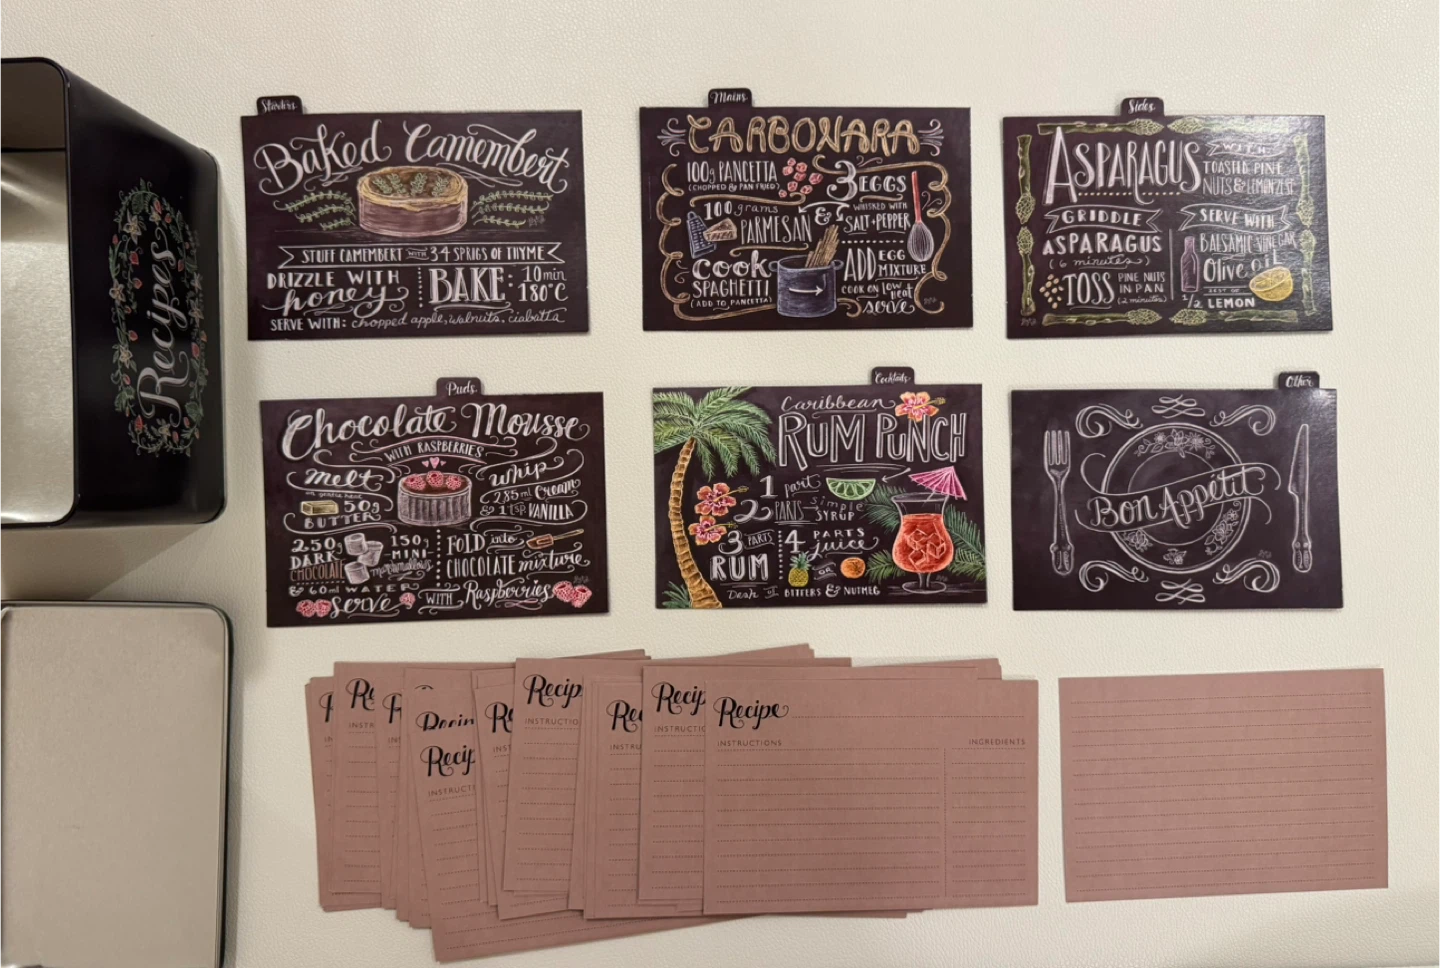 Recipes
Starters
Baked Camembert
STUFF CAMEMBERT WITH 3-4 SPRIGS OF THYME
DRIZZLE WITH
honey
BAKE: 10 min
180°C
SERVE WITH: chopped apple, walnuts, ciabatta
Mains
CARBONARA
100g PANCETTA
(CHOPPED & PAN FRIED)
3 EGGS
WHISKED WITH
SALT + PEPPER
100 grams
PARMESAN &
COOK
SPAGHETTI
(ADD TO PANCETTA)
ADD EGG
MIXTURE
COOK ON low heat
& serve
Sides
ASPARAGUS
WITH
TOASTED PINE
NUTS & LEMON ZEST
GRIDDLE
ASPARAGUS
(6 minutes)
TOSS PINE NUTS
IN PAN
(2 minutes)
SERVE WITH
BALSAMIC VINEGAR
Olive oil
ZEST OF
1/2 LEMON
Puds
Chocolate Mousse
WITH RASPBERRIES
melt
on gentle heat
50g
BUTTER
250g
DARK
CHOCOLATE
150g
MINI-
marshmallows
& 60ml WATER
whip
285ml Cream
& 1 tsp VANILLA
FOLD into
CHOCOLATE mixture
Serve WITH Raspberries
Cocktails
Caribbean
RUM PUNCH
1 part
2 PARTS simple
SYRUP
3 PARTS
RUM
4 PARTS
juice
OR
Dash of BITTERS & NUTMEG
Other
Bon Appétit
Recipe
INSTRUCTIONS
INGREDIENTS